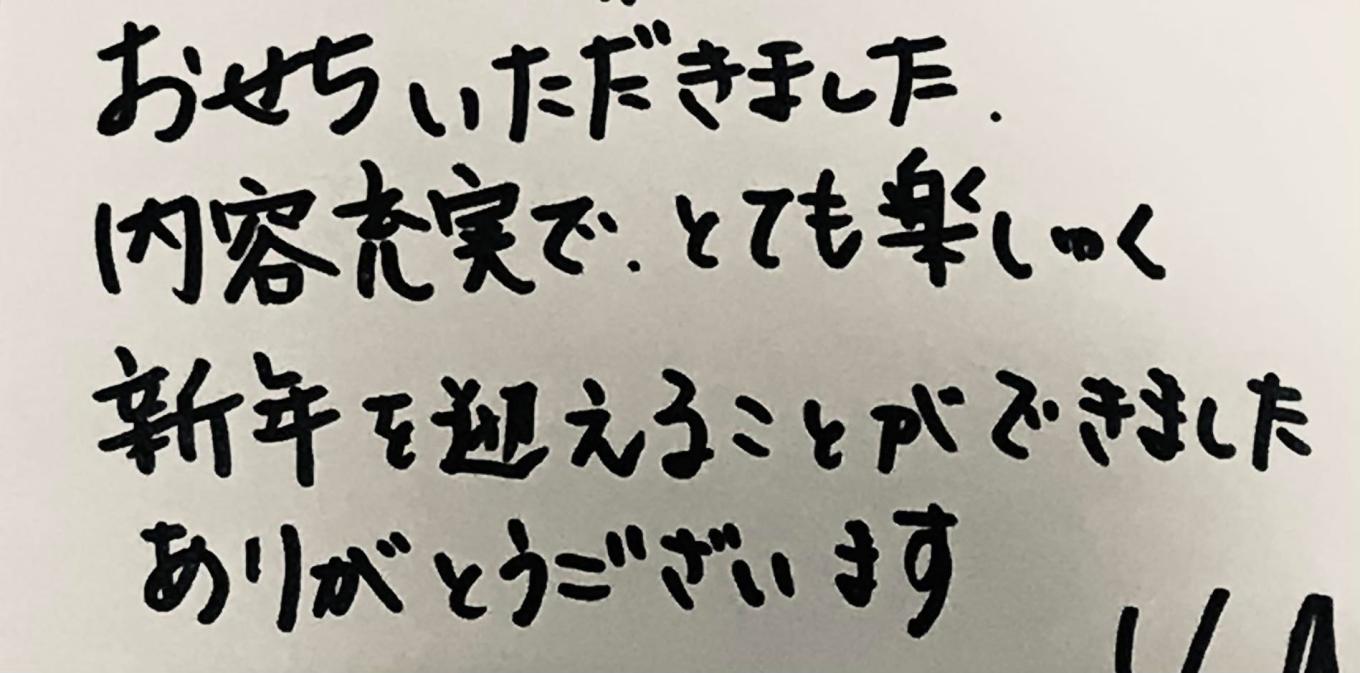 おせちいただきました.
内容充実で.とても楽しく
新年を迎えることができました
ありがとうございます